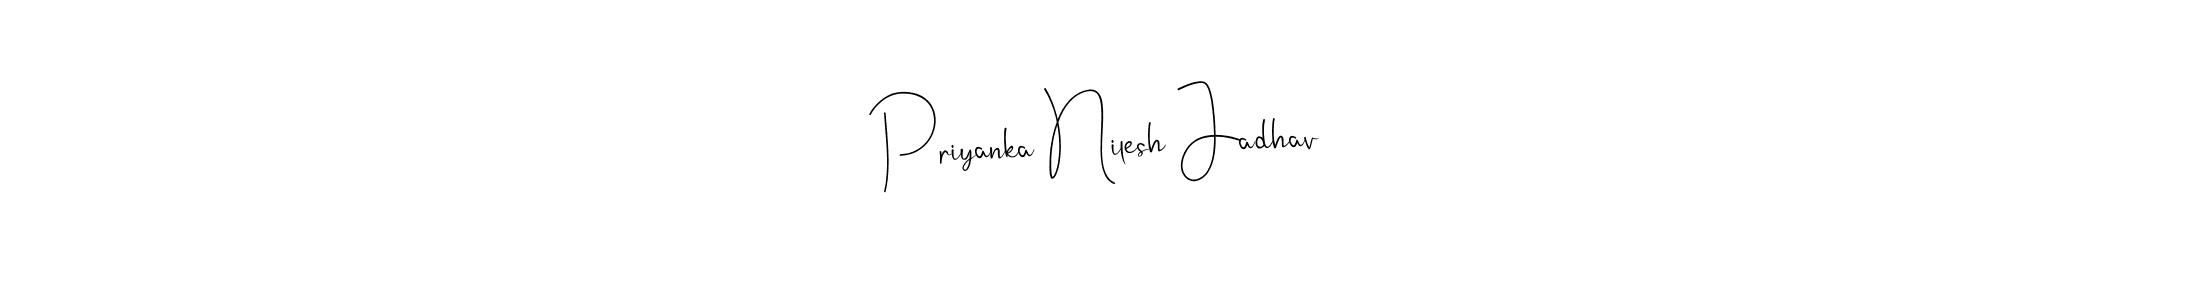 Priyanka Nilesh Jadhav